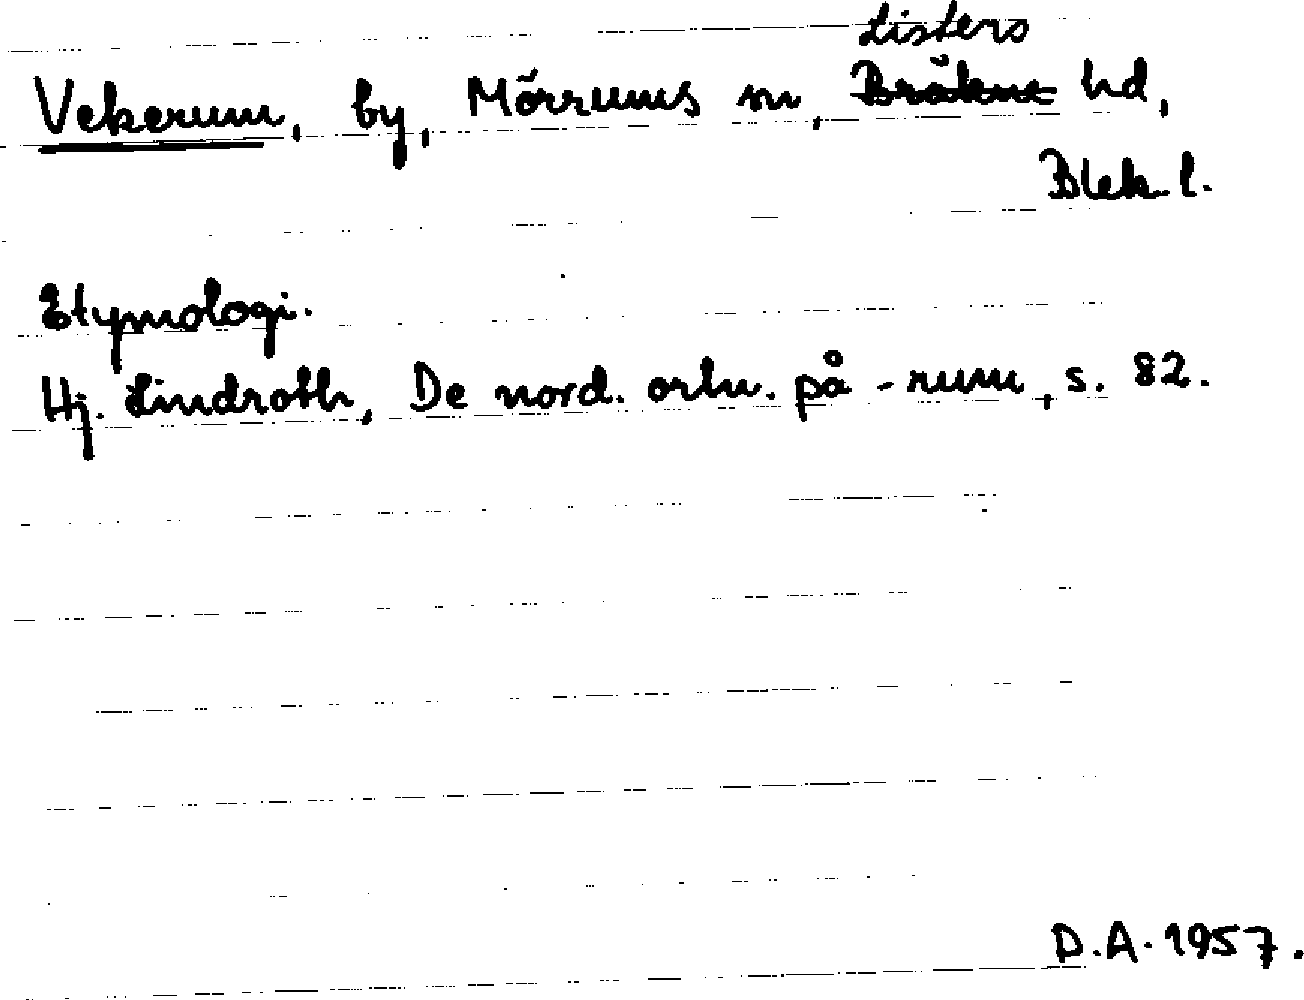 Listers
Vekerum, by, Mörrums sn, Bräkne hd,
Blek. l.
Etymologi.
Hj. Lindroth, De nord. ortn. på -rum, s. 82.
D.A. 1957.